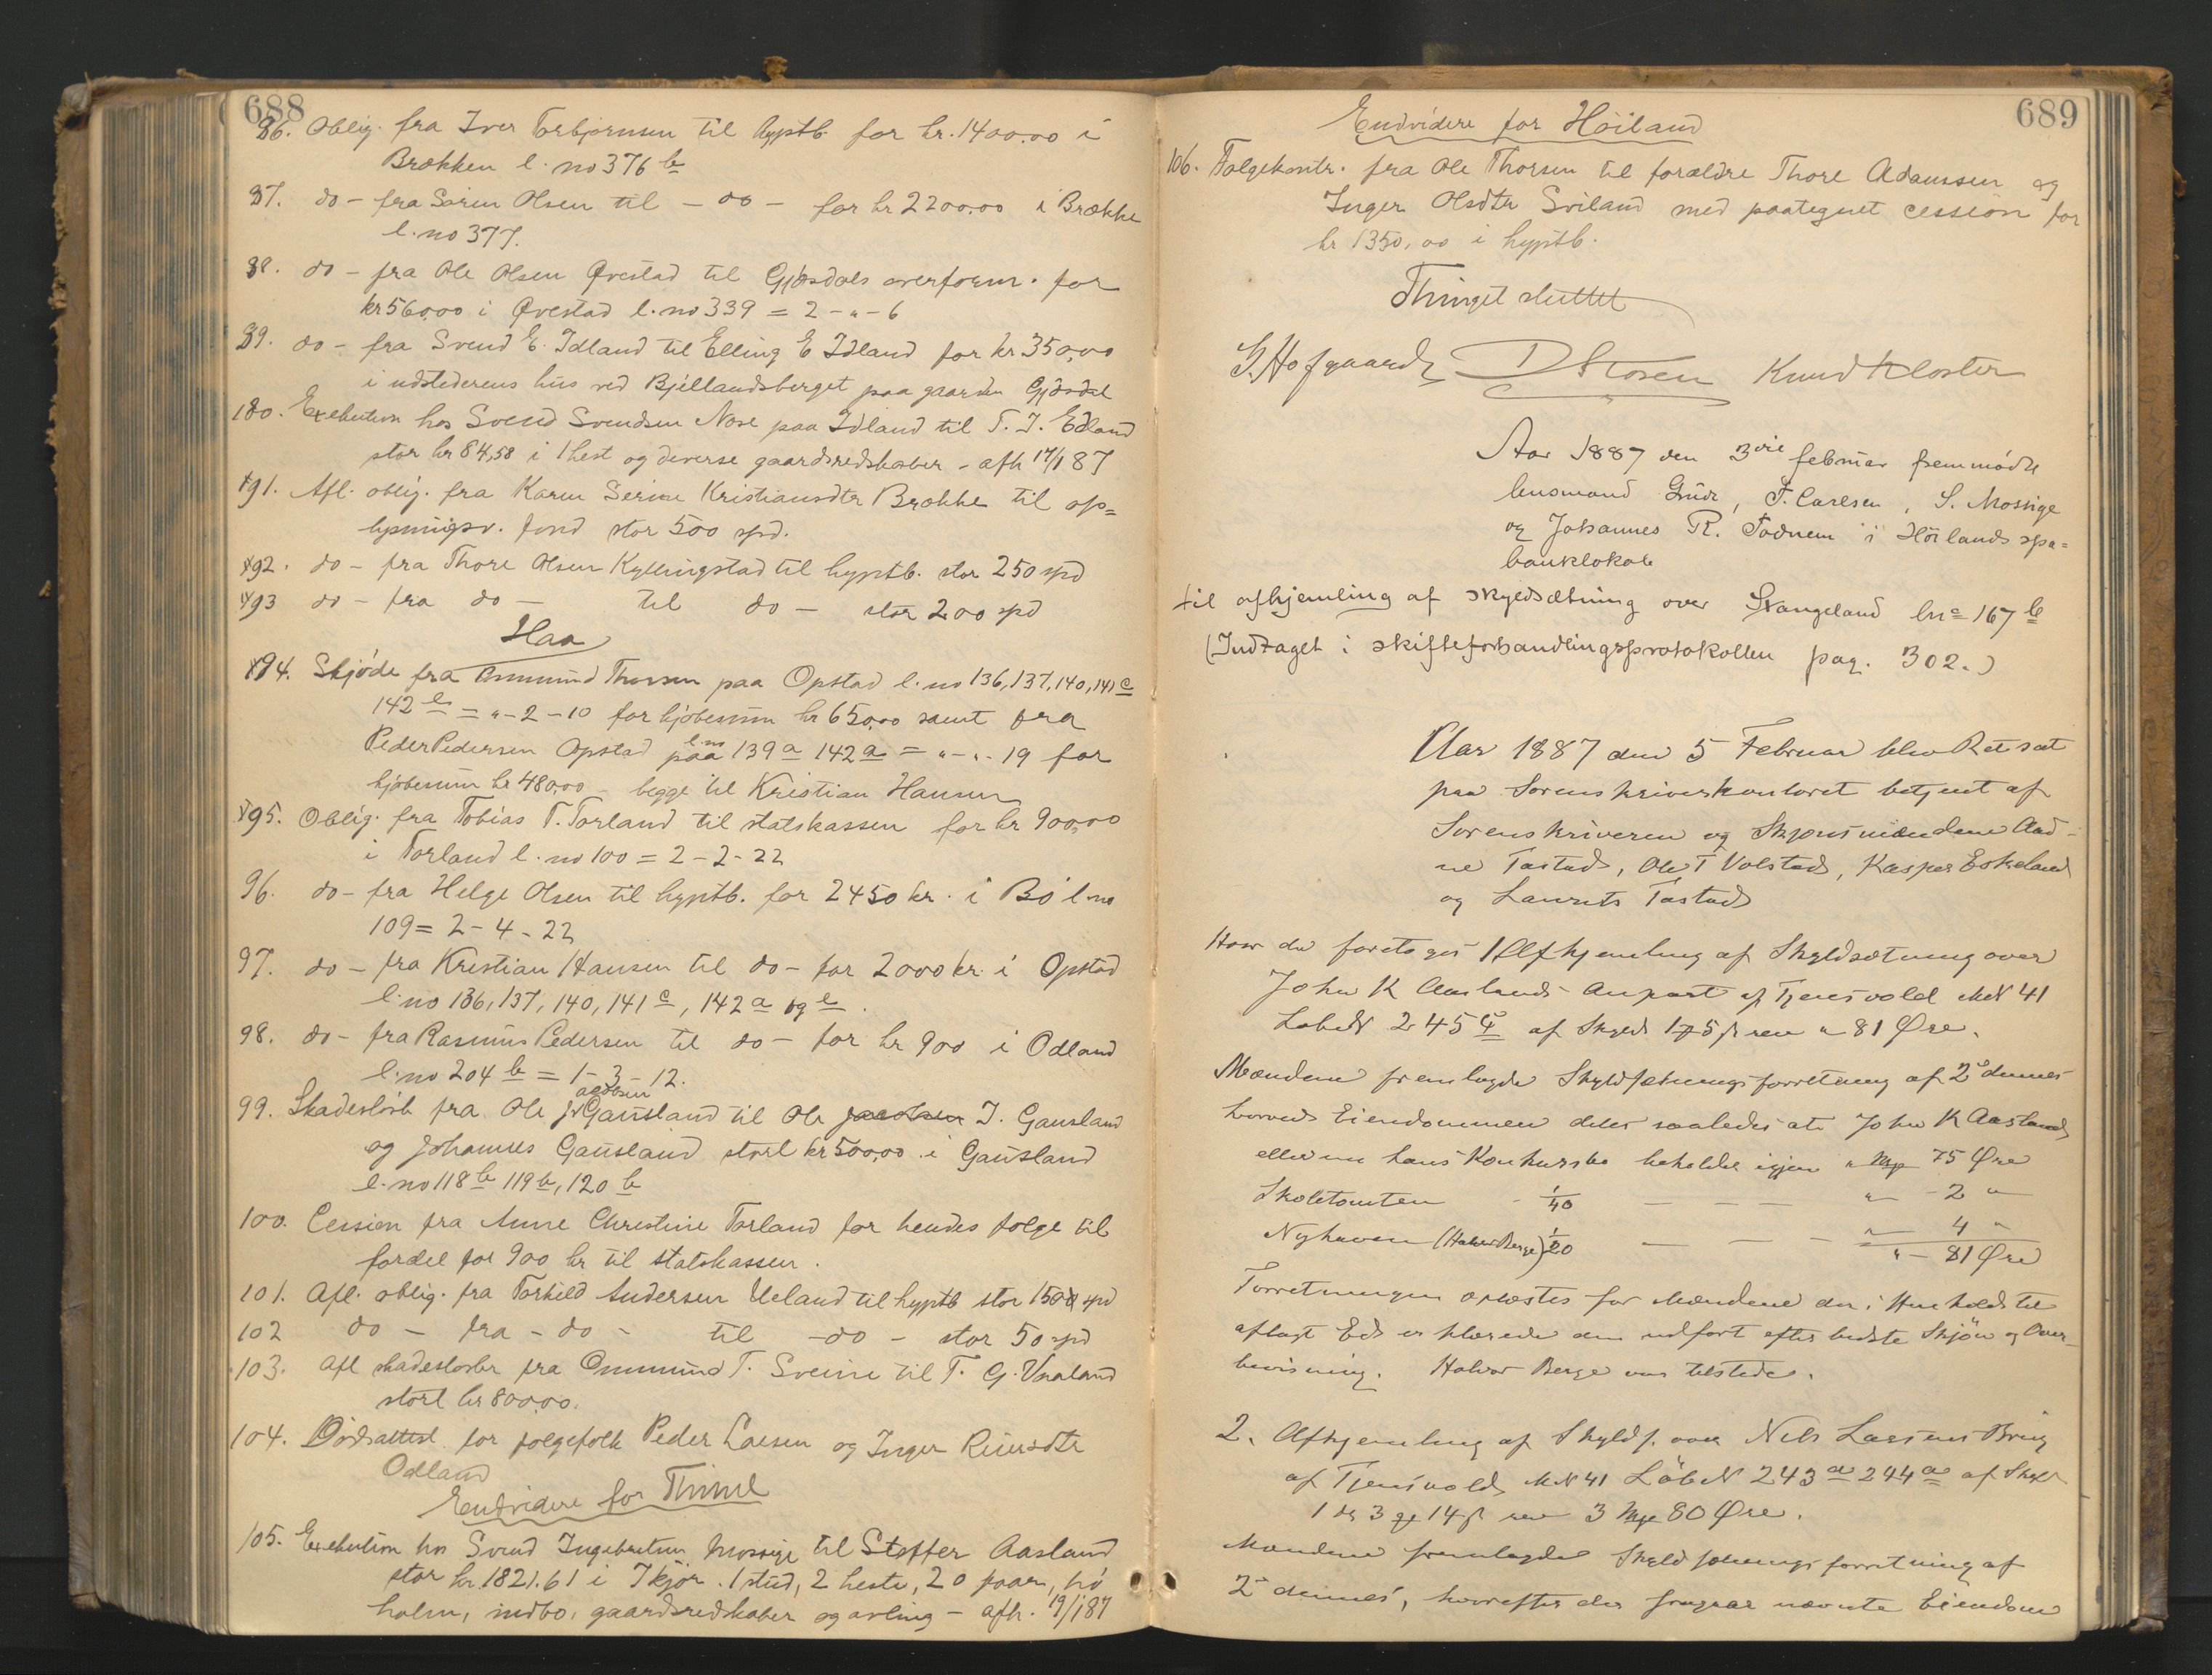 688
86. Oblig. fra Iver Torbjørnsen til hyptb. for kr. 1400.00 i
Brækken l. no 376 b
87. do - fra Søren Olsen til - do - for kr 2200.00 i Brække
l. no 377.
88. do - fra Ole Olsen Øvestad til Gjæsdals overform. for
kr 560.00 i Øvestad l. no 339 = 2 - " - 6
89. do - fra Svend E. Idland til Elling E Idland for kr 350,00
i udstederens hus ved Bjellandsberget paa gaarden Gjæsdal
Exekution hos Svend Svendsen Nose paa Idland til T. I. Edland
stor kr 84,58 i 1 hest og diverse gaardsredskaber - afh 17/1 87
91. Afl. oblig. fra Karen Serine Kristiansdtr Brække til op=
lysningsv. fond stor 500 spd.
92. do - fra Thore Olsen Kyllingstad til hyptb. stor 250 spd
93 do - fra do - til do - stor 200 spd
Haa
94. Skjøde fra Ommund Thorsen paa Opstad l. no 136, 137, 140, 141 c
142 e = " - 2 - 10 for kjøbesum kr 650,00 samt fra
Peder Pedersen Opstad paa l. no 139 a 142 a = " - " - 19 for
kjøbesum kr 480,00 - begge til Kristian Hansen
95. Oblig. fra Tobias T. Torland til statskassen for kr 900,00
i Torland l. no 100 = 2 - 2 - 22
96. do - fra Helge Olsen til hyptb. for 2450 kr. i Bø l. no
109 = 2 - 4 - 22
97. do - fra Kristian Hansen til do - for 2000 kr. i Opstad
l. no 136, 137, 140, 141 c, 142 a og e.
98. do - fra Rasmus Pedersen til do - for kr 900 i Odland
l. no 204 b = 1 - 3 - 12.
99. Skadesløsb fra Ole Gausland til Ole Jacobsen I. Gausland
og Johannes Gausland stort kr 500,00 i Gausland
l. no 118 b 119 b, 120 b
100. Cession fra Anne Christine Torland for hendes folge til
fordel for 900 kr til statskassen.
101. Afl. oblig. fra Torkild Andersen Ueland til hyptb stor 150 spd
102 do - fra - do - til - do - stor 50 spd
103. Afl skadesløsbr fra Ommund T. Sveine til T. G. Vraland
stort kr 800,00.
104. Dødsattest for folgefolk Peder Larsen og Inger Riersdtr
Odland
Endvidere for Thime
105. Exekution hos Svend Ingebretsen Mossige til Steffer Aasland
stor kr. 1821.61 i 7 kjør. 1 stud, 2 heste, 20 faar, hø
halm, indbo, gaardsredskaber og avling - afh. 19/1 87
689
Endvidere for Høiland
106. Folgekontr. fra Ole Thorsen til forældre Thore Adamssen og
Inger Olsdtr Sviland med paategnet cession for
kr 1350,00 i hyptb.
Thinget sluttet
G. Hofgaard Knud Kloster
Aar 1887 den 3die februar fremmødte
lensmand Grude, T. Carlsen, S. Mossige
og Johannes R. Todnem i Høilands spa=
banklokale
til afhjemling af skyldsætning over Stangeland lno 167 b
(Indtaget i skifteforhandlingsprotokollen pag. 302.)
Aar 1887 den 5 Februar blev Ret sat
paa Sorenskriverkontoret betjent af
Sorenskriveren og Skjønsmændene Aad-
ne Tastad, Ole T Volstad, Kasper Eskeland
og Laurits Tastad
Hvor da foretoges 1 Afhjemling af Skyldsætning over
John K Aaslands Anpart af Tjensvold MN 41
LøbeN 245 af Skyld 81 Øre.
Mændene fremlagde Skyldsætningsforretning af 2 dennes
hvorved Eiendommen deles saaledes at John K Aasland
eller nu hans Konkursbo beholder igjen " 75 Øre
Skoletomten - 1/40 — — — " - 2 "
Nyhaven (Halvor Berge) 1/20 — — — " 4 "
" - 81 Øre
Forretningen oplæstes for Mændene der i Henhold til
aflagt Ed erklærede den udført efter bedste Skjøn og Over-
bevisning. Halvor Berge var tilstede.
2. Afhjemling af Skylds. over Nils Larsens Brug
af Tjensvold MN 41 LøbeN 243 a 244 a af Skyld
3 80 Øre.
Mændene fremlagde Skyldsætningsforretning af
2 dennes, hvorefter der fragaar nævnte Eiendom